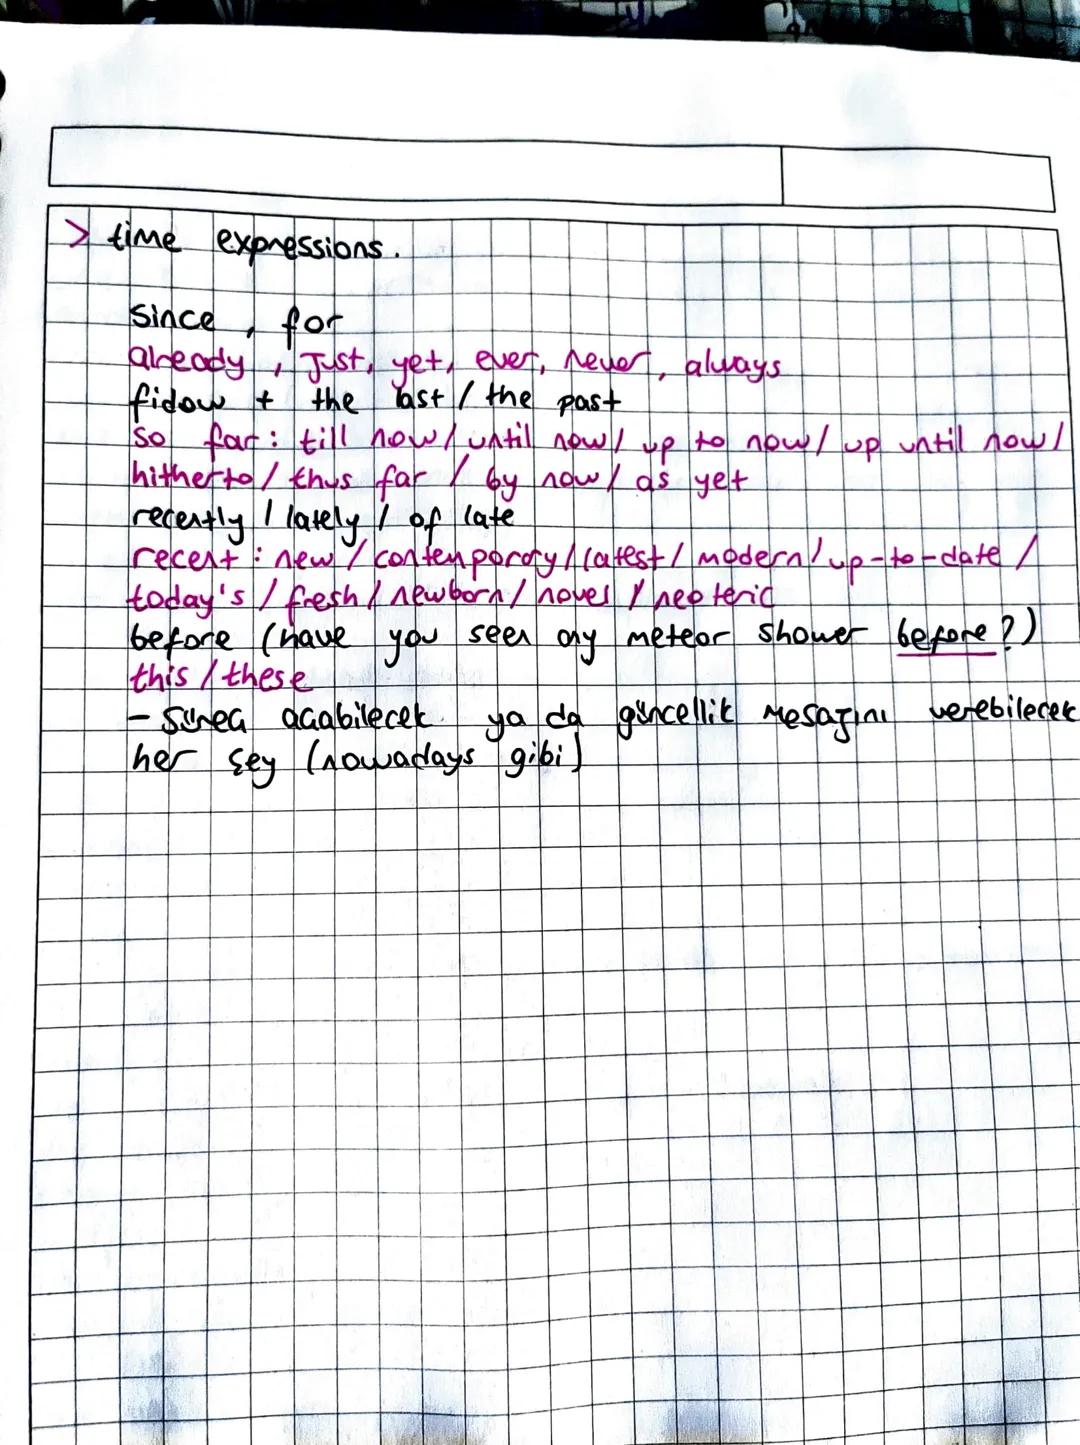 > time expressions.
since, for
already, Just, yet, ever, never, always
fidow + the last / the past
so far: till now / until now / up to now / up until now /
hitherto / thus far / by now / as yet
recently / lately / of late
recent: new / contemporary / latest / modern / up-to-date /
today's / fresh / newborn / novel / neoteric
before (have you seen any meteor shower before?)
this / these
- Süreci açabilecek ya da güncellik mesajını verebilecek
her şey (nowadays gibi)